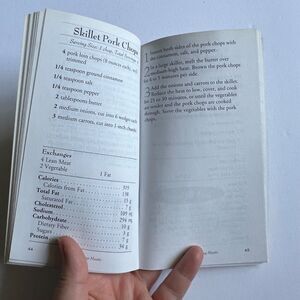 Skillet Pork Chops
Serving Size: 1 chop, Total Servings: 4
4 pork loin chops (8 ounces each), well
trimmed
1/4 teaspoon ground cinnamon
1/4 teaspoon salt
1/4 teaspoon pepper
2 tablespoons butter
2 medium onions, cut into 6 wedges each
3 medium carrots, cut into 1-inch chunks
Exchanges
4 Lean Meat
2 Vegetable
1 Fat
Calories
Calories from Fat
Total Fat
Saturated Fat
Cholesterol
Sodium
Carbohydrate
Dietary Fiber
Sugars
Protein
44
1 Season both sides of the pork chops with
the cinnamon, salt, and pepper.
2 In a large skillet, melt the butter over
medium-high heat. Brown the pork chops
for 4 to 5 minutes per side.
3 Add the onions and carrots to the skillet.
Reduce the heat to low, cover, and cook
for 25 to 30 minutes, or until the veggies
are tender and the pork chops are cooked
through. Serve the vegetables with the pork
chops.
45